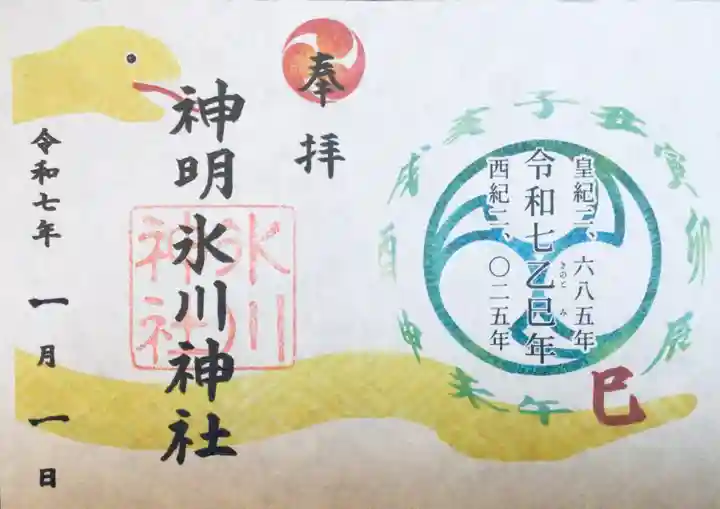 子
丑
寅
卯
辰
巳
午
未
申
酉
戌
亥
皇紀二、六八五年
令和七乙巳年
きのと み
西紀二、〇二五年
奉拝
神明氷川神社
氷川
神社
令和七年一月一日